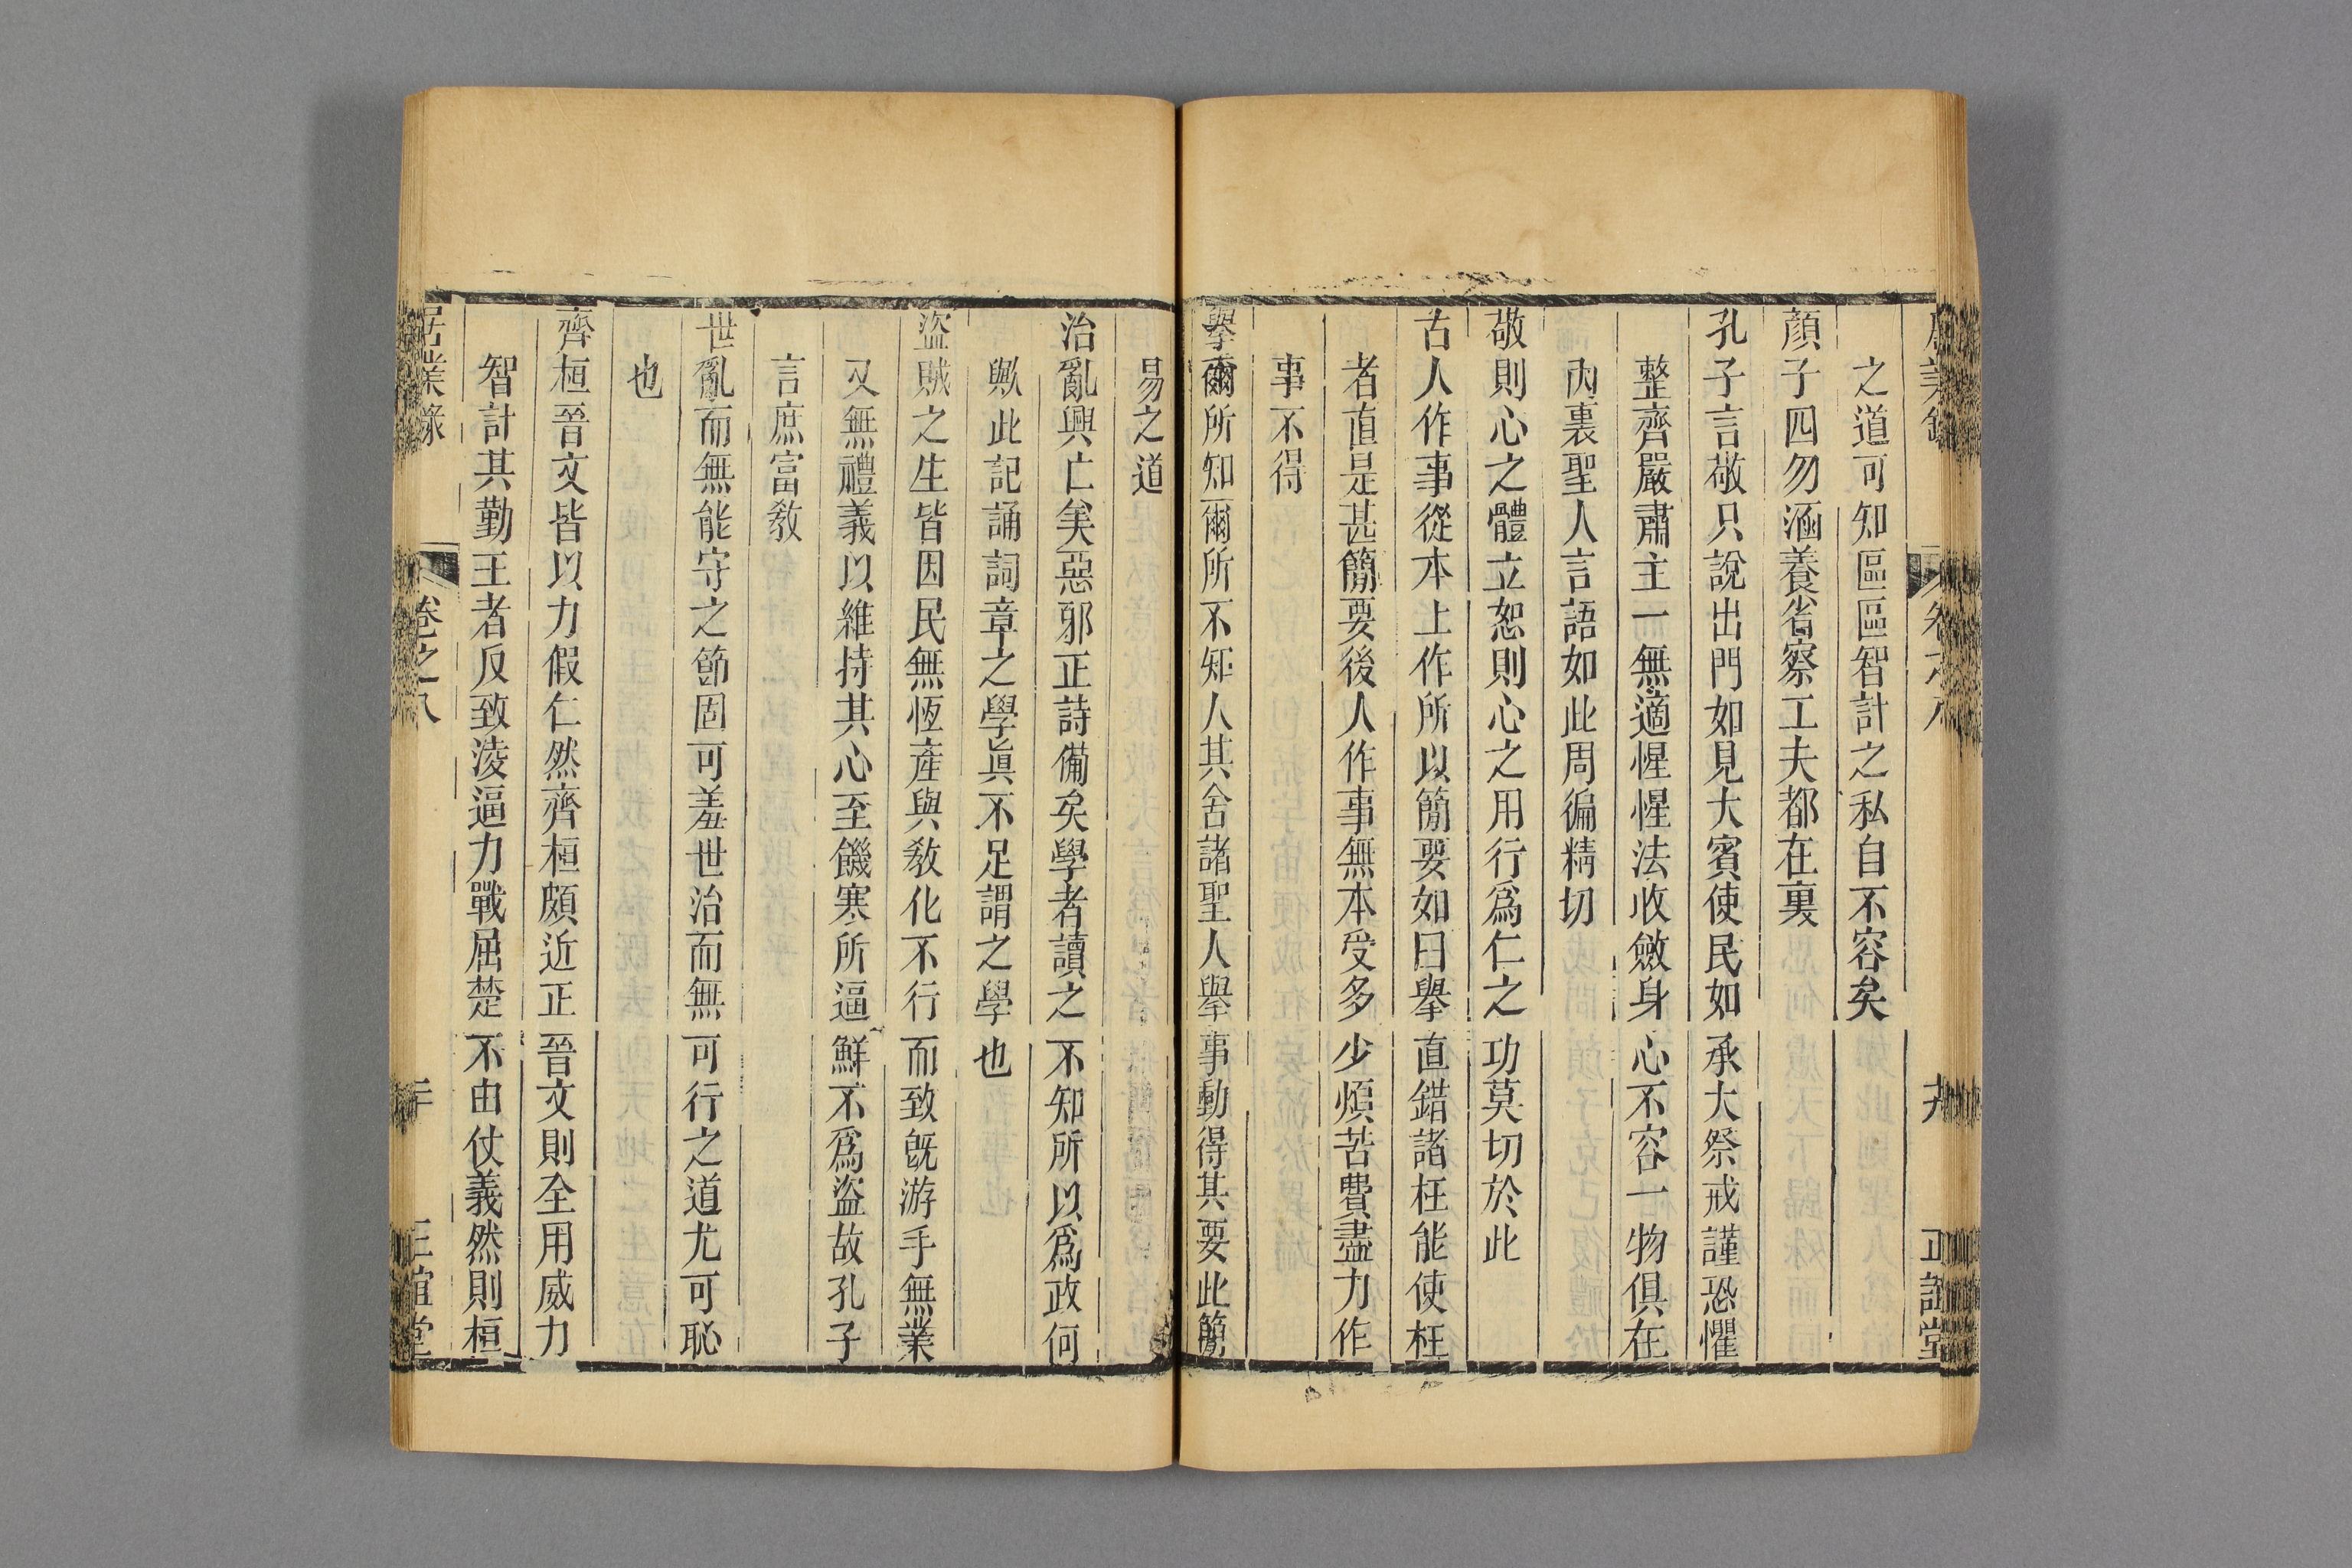 居業錄 卷之八 廿 正誼堂
之道可知區區智計之私自不容矣
顏子四勿涵養省察工夫都在裏
孔子言敬只說出門如見大賓使民如承大祭戒謹恐懼
整齊嚴肅主一無適惺惺法收斂身心不容一物俱在
內裏聖人言語如此周徧精切
敬則心之體立恕則心之用行爲仁之功莫切於此
古人作事從本上作所以簡要如曰舉直錯諸枉能使枉
者直是甚簡要後人作事無本受多少煩苦費盡力作
事不得
舉爾所知爾所不知人其舍諸聖人舉事動得其要此簡
易之道
治亂興亡矣惡邪正詩備矣學者讀之不知所以爲政何
歟此記誦詞章之學眞不足謂之學也
盜賊之生皆因民無恆產與敎化不行而致旣游手無業
又無禮義以維持其心至饑寒所逼鮮不爲盜故孔子
言庶富敎
世亂而無能守之節固可羞世治而無可行之道尤可恥
也
齊桓晉文皆以力假仁然齊桓頗近正晉文則全用威力
智計其勤王者反致淩逼力戰屈楚不由仗義然則桓
居業錄 卷之八 正誼堂